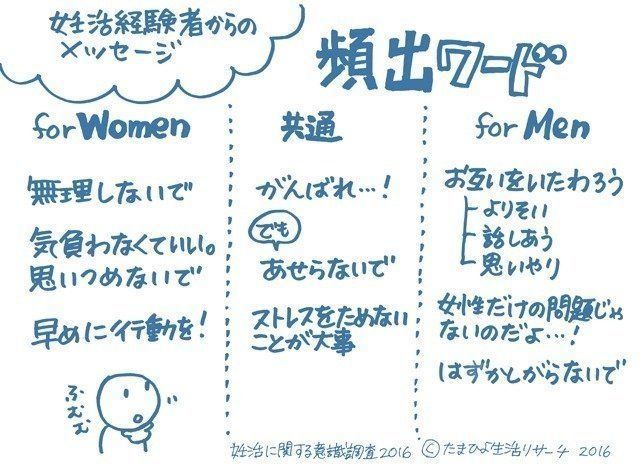 妊活経験者からの
メッセージ
頻出ワード
for Women
無理しないで
気負わなくていい。
思いつめないで
早めに行動を!
ふむむ
共通
がんばれ…!
でも
あせらないで
ストレスをためない
ことが大事
for Men
お互いをいたわろう
よりそい
話しあう
思いやり
女性だけの問題じゃ
ないのだよ…!
はずかしがらないで
妊活に関する意識調査2016 ©たまひよ生活リサーチ 2016